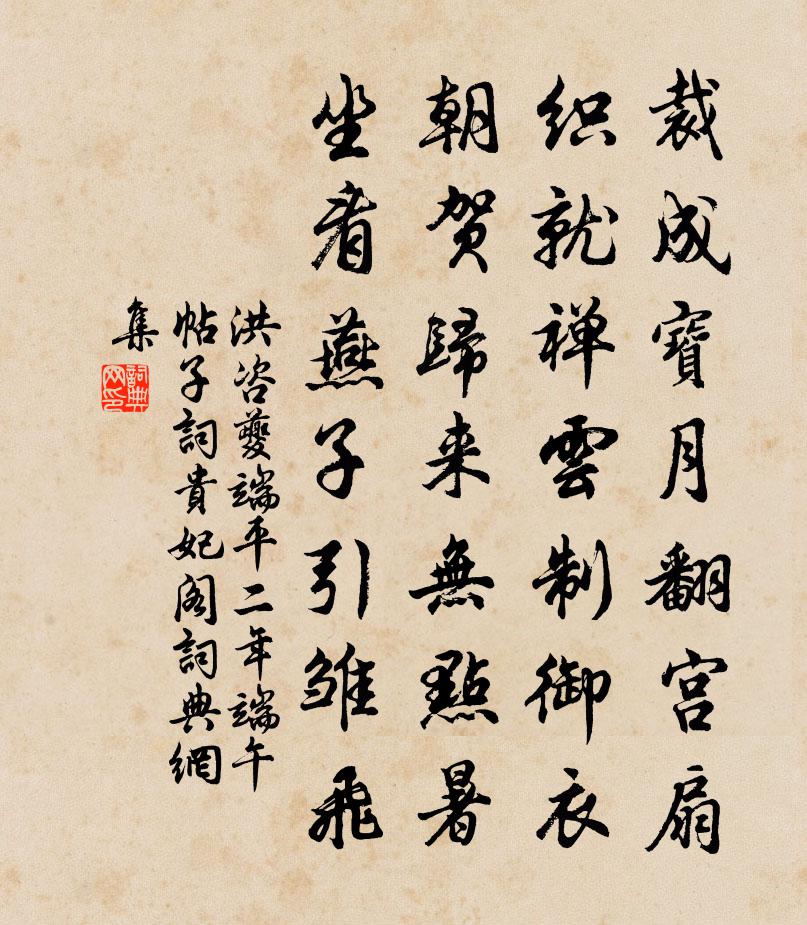 裁成寶月翻宫扇
织就禅雲制御衣
朝贺歸来無點暑
坐看燕子引雏飛
洪咨夔端平二年端午
帖子詞貴妃阁詞典網
集
詞典网印